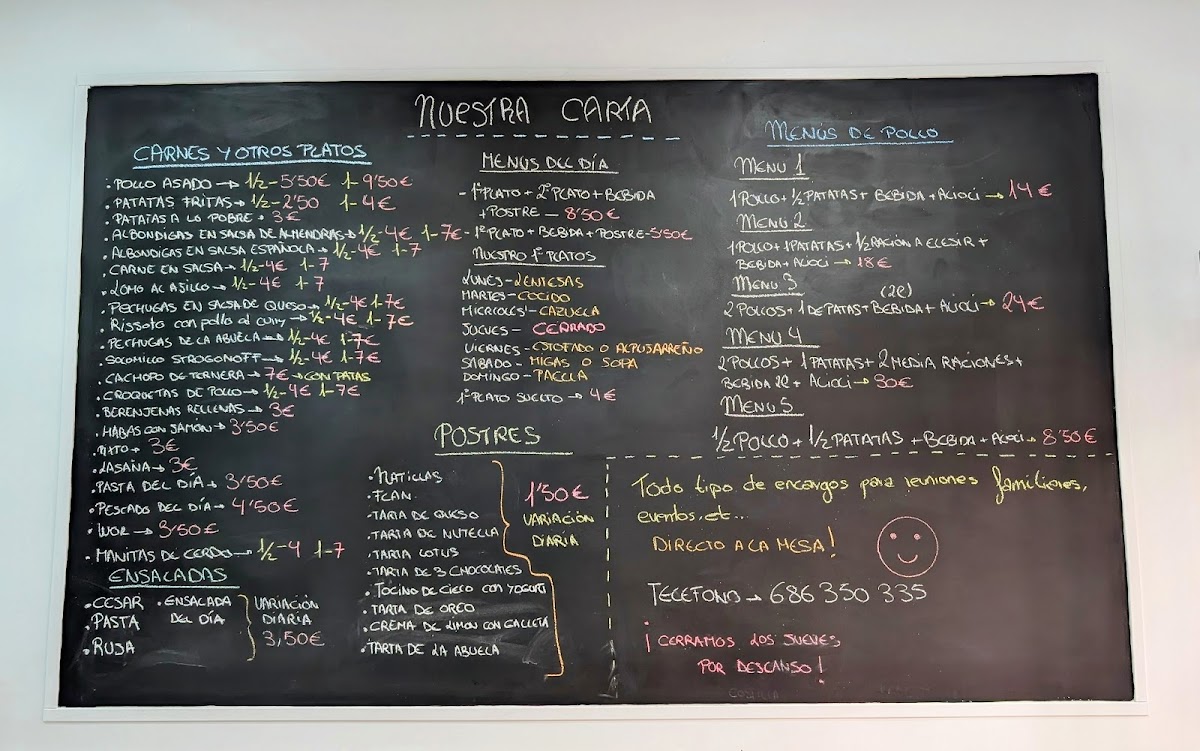 NUESTRA CARTA
CARNES Y OTROS PLATOS
. POLLO ASADO → 1/2 - 5'50€ 1 - 9'50€
. PATATAS FRITAS → 1/2 - 2'50 1 - 4€
. PATATAS A LO POBRE → 3€
. ALBONDIGAS EN SALSA DE ALMENDRAS → 1/2 - 4€ 1 - 7€
. ALBONDIGAS EN SALSA ESPAÑOLA → 1/2 - 4€ 1 - 7
. CARNE EN SALSA → 1/2 - 4€ 1 - 7
. LOMO AL AJILLO → 1/2 - 4€ 1 - 7
. PECHUGAS EN SALSA DE QUESO → 1/2 - 4€ 1 - 7€
. RISSOTO con pollo al curry → 1/2 - 4€ 1 - 7€
. PECHUGAS DE LA ABUELA → 1/2 - 4€ 1 - 7€
. SOLOMILLO STROGONOFF → 1/2 - 4€ 1 - 7€
. CACHOPO DE TERNERA → 7€ → CON PATAS
. CROQUETAS DE POLLO → 1/2 - 4€ 1 - 7€
. BERENJENAS RELLENAS → 3€
. HABAS CON JAMÓN → 3'50€
. → 3€
. LASAÑA → 3€
. PASTA DEL DÍA → 3'50€
. PESCADO DEL DÍA → 4'50€
. WOK → 3'50€
. MANITAS DE CERDO → 1/2 - 4 1 - 7
ENSALADAS
. CESAR
. PASTA
. RUSA
. ENSALADA
DEL DÍA
VARIACIÓN
DIARIA
3,50€
MENUS DEL DÍA
- 1º PLATO + 2º PLATO + BEBIDA
+ POSTRE — 8'50€
- 1º PLATO + BEBIDA + POSTRE - 5'50€
NUESTRO 1º PLATOS
LUNES - LENTEJAS
MARTES - COCIDO
MIERCOLES - CAZUELA
JUEVES - CERRADO
VIERNES - ESTOFADO O ALPUJARREÑO
SABADO - MIGAS O SOPA
DOMINGO - PAELLA
1º PLATO SUELTO → 4€
POSTRES
. NATILLAS
. FLAN
. TARTA DE QUESO
. TARTA DE NUTELLA
. TARTA LOTUS
. TARTA DE 3 CHOCOLATES
. TOCINO DE CIELO CON YOGURT
. TARTA DE OREO
. CREMA DE LIMON CON GALLETA
. TARTA DE LA ABUELA
1'50€
VARIACIÓN
DIARIA
MENÚS DE POLLO
MENU 1
1 POLLO + 1/2 PATATAS + BEBIDA + ALIOLI → 14€
MENU 2
1 POLLO + 1 PATATAS + 1/2 RACIÓN A ELEGIR +
BEBIDA + ALIOLI → 18€
MENU 3
(2L)
2 POLLOS + 1 DE PATAS + BEBIDA + ALIOLI → 24€
MENU 4
2 POLLOS + 1 PATATAS + 2 MEDIA RACIONES +
BEBIDA 2L + ALIOLI → 30€
MENU 5
1/2 POLLO + 1/2 PATATAS + BEBIDA + ALIOLI → 8'50€
Todo tipo de encargos para reuniones familiares,
eventos, et...
DIRECTO A LA MESA!
TELEFONO → 686 350 335
¡CERRAMOS LOS JUEVES,
POR DESCANSO!